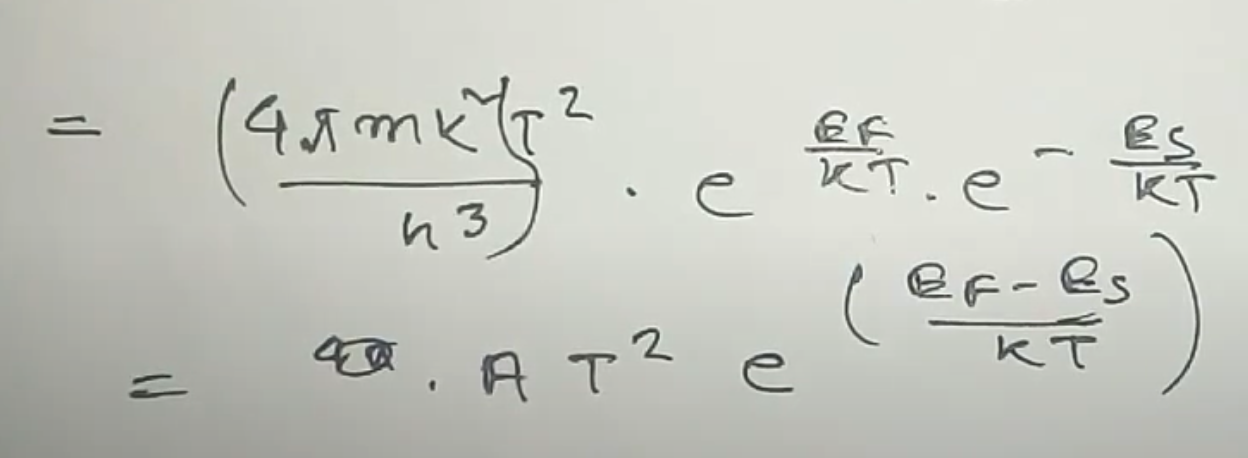 = (4πmk²/h³) T² · e^(EF/KT) · e^(-ES/KT)
= · A T² e^((EF-ES)/KT)